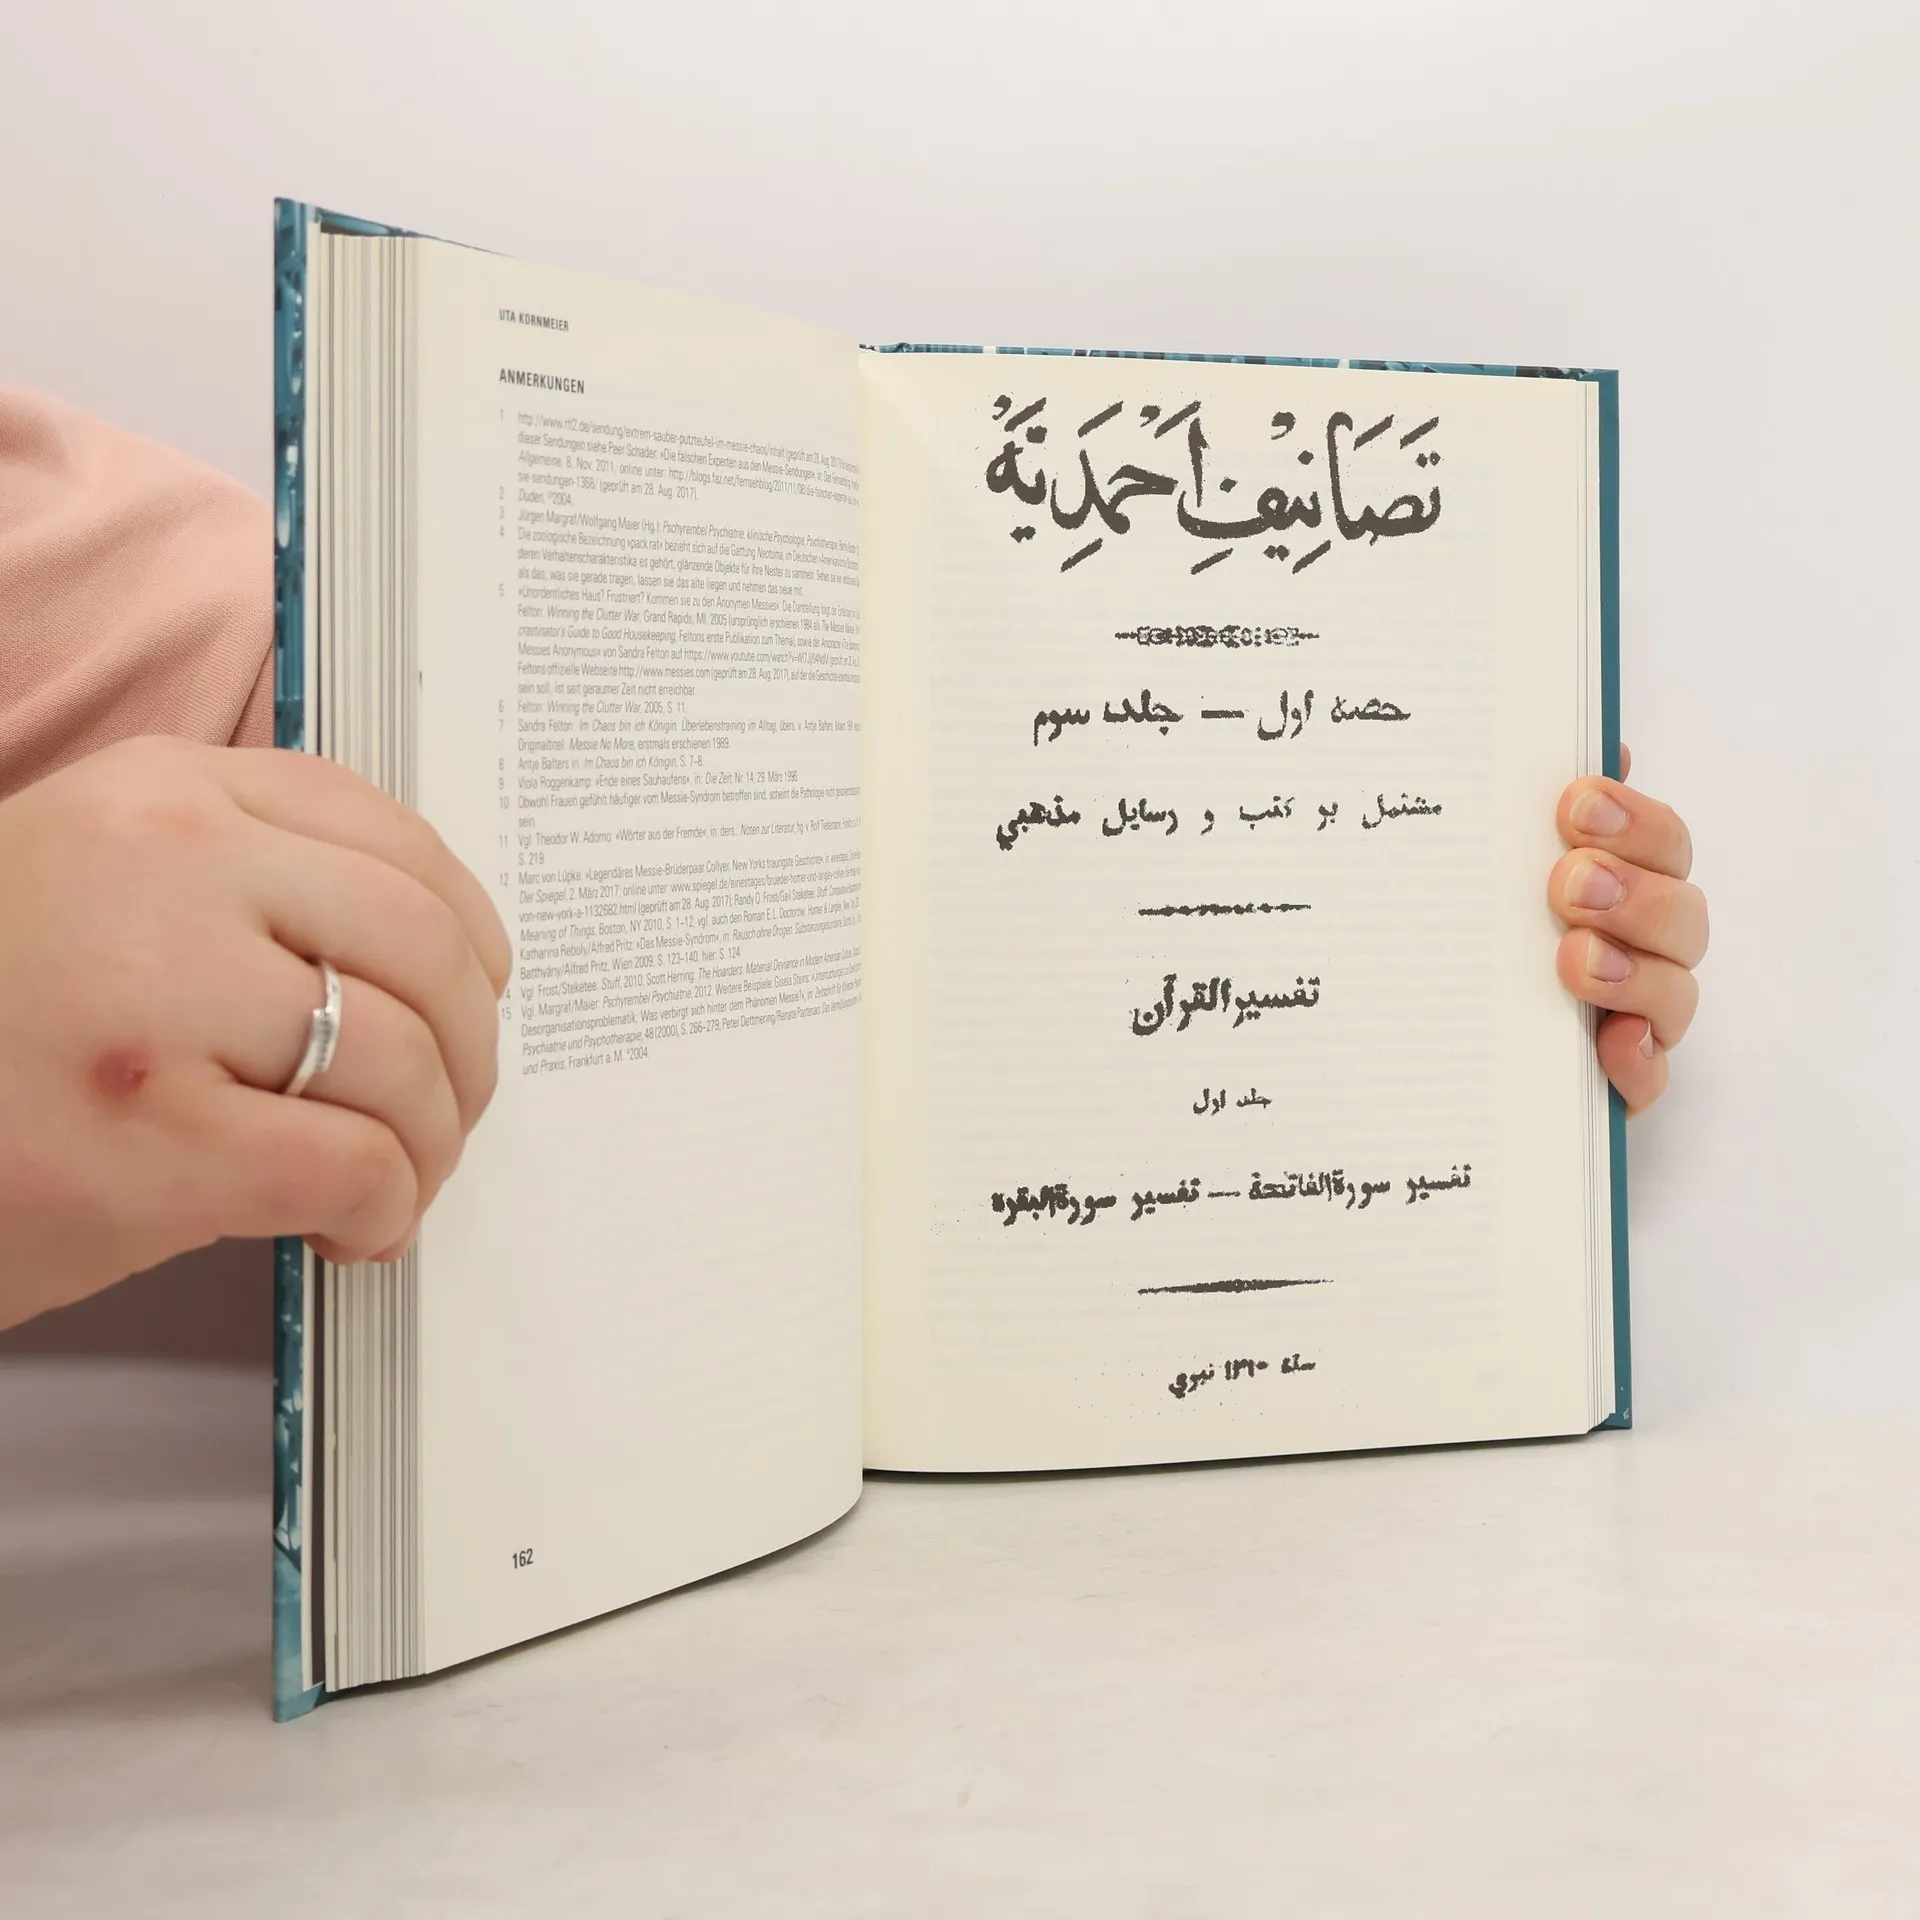 UTA KORNMEIER
ANMERKUNGEN
1 http://www.rtl2.de/sendung/extrem-sauber-putzteufel-im-messie-chaos/inhalt (geprüft am 28. Aug. 2017).
dieser Sendungen siehe Peer Schader: »Die falschen Experten aus den Messie-Sendungen«, in: Das Fernsehblog,
Allgemeine, 8. Nov. 2011, online unter: http://blogs.faz.net/fernsehblog/2011/11/08/die-falschen-experten-aus-
sie-sendungen-1368/ (geprüft am 28. Aug. 2017).
2 Duden, 2004.
3 Jürgen Margraf/Wolfgang Maier (Hg.): Pschyrembel Psychiatrie, Klinische Psychologie, Psychotherapie,
4 Die zoologische Bezeichnung »pack rat« bezieht sich auf die Gattung Neotoma, im Deutschen
deren Verhaltenscharakteristika es gehört, glänzende Objekte für ihre Nester zu sammeln. Sehen sie
als das, was sie gerade tragen, lassen sie das alte liegen und nehmen das neue mit.
5 »Unordentliches Haus? Frustriert? Kommen sie zu den Anonymen Messies«. Die Darstellung folgt der
Felton: Winning the Clutter War, Grand Rapids, MI. 2005 (ursprünglich erschienen 1984 als The Messies
crastinator's Guide to Good Housekeeping, Feltons erste Publikation zum Thema), sowie der Ansprache
Messies Anonymous« von Sandra Felton auf https://www.youtube.com/watch?v=
Feltons offizielle Webseite http://www.messies.com (geprüft am 28. Aug. 2017), auf der die Geschichte
sein soll, ist seit geraumer Zeit nicht erreichbar.
6 Felton: Winning the Clutter War, 2005, S. 11.
7 Sandra Felton: Im Chaos bin ich Königin. Überlebenstraining im Alltag, übers. v. Antje Balters
Originaltitel: Messie No More, erstmals erschienen 1989.
8 Antje Balters in: Im Chaos bin ich Königin, S. 7–8.
9 Viola Roggenkamp: »Ende eines Sauhaufens«, in: Die Zeit, Nr. 14, 29. März 1996.
10 Obwohl Frauen gefühlt häufiger vom Messie-Syndrom betroffen sind, scheint die Pathologie nicht
sein.
11 Vgl. Theodor W. Adorno: »Wörter aus der Fremde«, in: ders.: Noten zur Literatur, hg. v. Rolf Tiedemann,
S. 219.
12 Marc von Lüpke: »Legendäres Messie-Brüderpaar Collyer: New Yorks traurigste Geschichte«, in: einestages,
Der Spiegel, 2. März 2017; online unter: www.spiegel.de/einestages/brueder-homer-und-langley-collyer-
von-new-york-a-1132682.html (geprüft am 28. Aug. 2017); Randy O. Frost/Gail Steketee: Stuff.
Meaning of Things, Boston, NY 2010, S. 1–12, vgl. auch den Roman E. L. Doctorow: Homer & Langley,
Katharina Reboly/Alfred Pritz: »Das Messie-Syndrom«, in: Rausch ohne Drogen.
Batthyány/Alfred Pritz, Wien 2009, S. 123–140, hier: S. 124.
4 Vgl. Frost/Steketee: Stuff, 2010; Scott Herring: The Hoarders: Material Deviance in Modern American Culture,
15 Vgl. Margraf/Maier: Pschyrembel Psychiatrie, 2012. Weitere Beispiele: Gisela Steins:
Desorganisationsproblematik. Was verbirgt sich hinter dem Phänomen Messie?«, in: Zeitschrift für
Psychiatrie und Psychotherapie, 48 (2000), S. 266–279; Peter Dettmering/Renate Pastenaci:
und Praxis, Frankfurt a. M. 2004.
162
تَصَانِیْفِ اَحْمَدِیَّہْ
حصہ اول — جلد سوم
مشتمل بر کتب و رسایل مذهبي
تفسیرالقرآن
جلد اول
تفسیر سورةالفاتحة — تفسیر سورةالبقرہ
سنہ ۱۳۱۰ نبوي